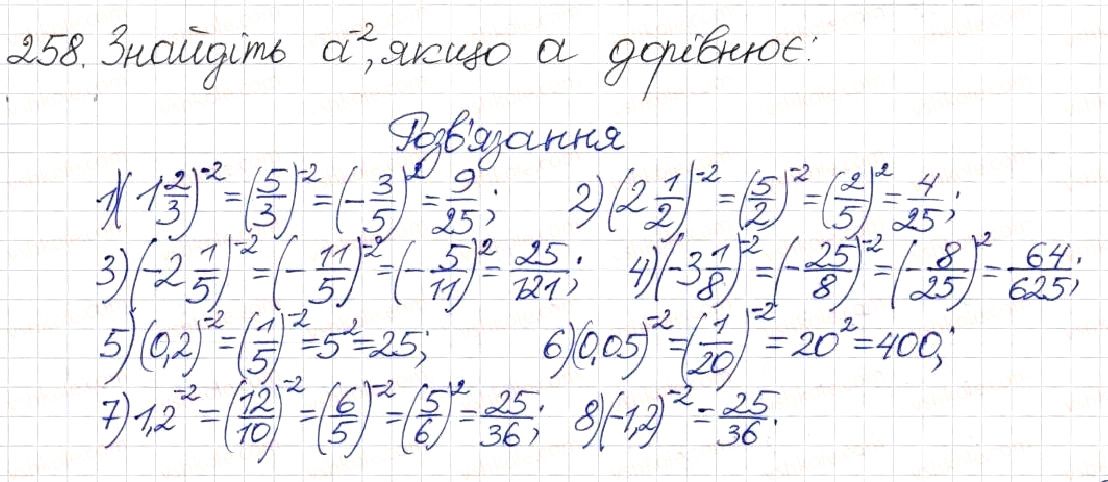 258. Знайдіть a⁻², якщо a дорівнює:
Розв'язання
1) (1 2/3)⁻² = (5/3)⁻² = (-3/5)² = 9/25; 2) (2 1/2)⁻² = (5/2)⁻² = (2/5)² = 4/25;
3) (-2 1/5)⁻² = (-11/5)⁻² = (-5/11)² = 25/121; 4) (-3 1/8)⁻² = (-25/8)⁻² = (-8/25)² = 64/625;
5) (0,2)⁻² = (1/5)⁻² = 5² = 25; 6) (0,05)⁻² = (1/20)⁻² = 20² = 400;
7) 1,2⁻² = (12/10)⁻² = (6/5)⁻² = (5/6)² = 25/36; 8) (-1,2)⁻² = 25/36.